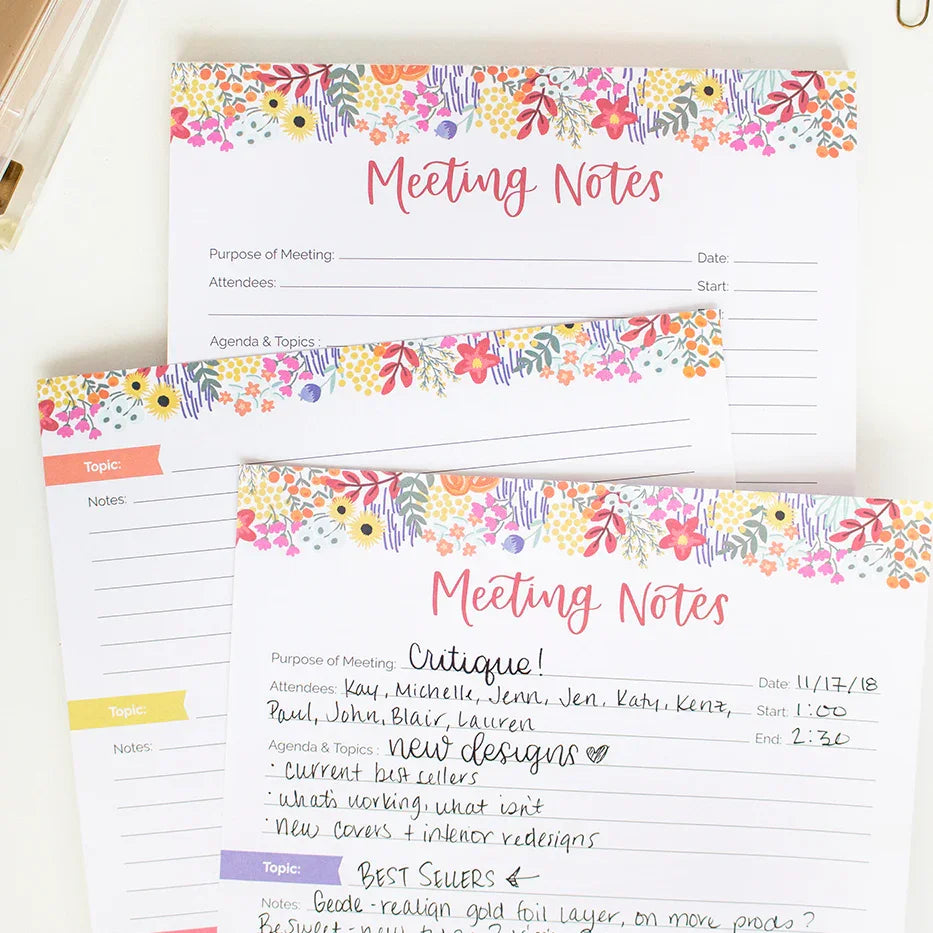 Meeting Notes
Purpose of Meeting:
Date:
Attendees:
Start:
Agenda & Topics :
Topic:
Notes:
Topic:
Notes:
Meeting Notes
Purpose of Meeting: Critique!
Date: 11/17/18
Attendees: Kay, Michelle, Jenn, Jen, Katy, Kenz,
Start: 1:00
Paul, John, Blair, Lauren
End: 2:30
Agenda & Topics : new designs
· current best sellers
· what's working, what isn't
· new covers + interior redesigns
Topic: BEST SELLERS ←
Notes: Geode - realign gold foil layer, on more prods?
Be sweet - new